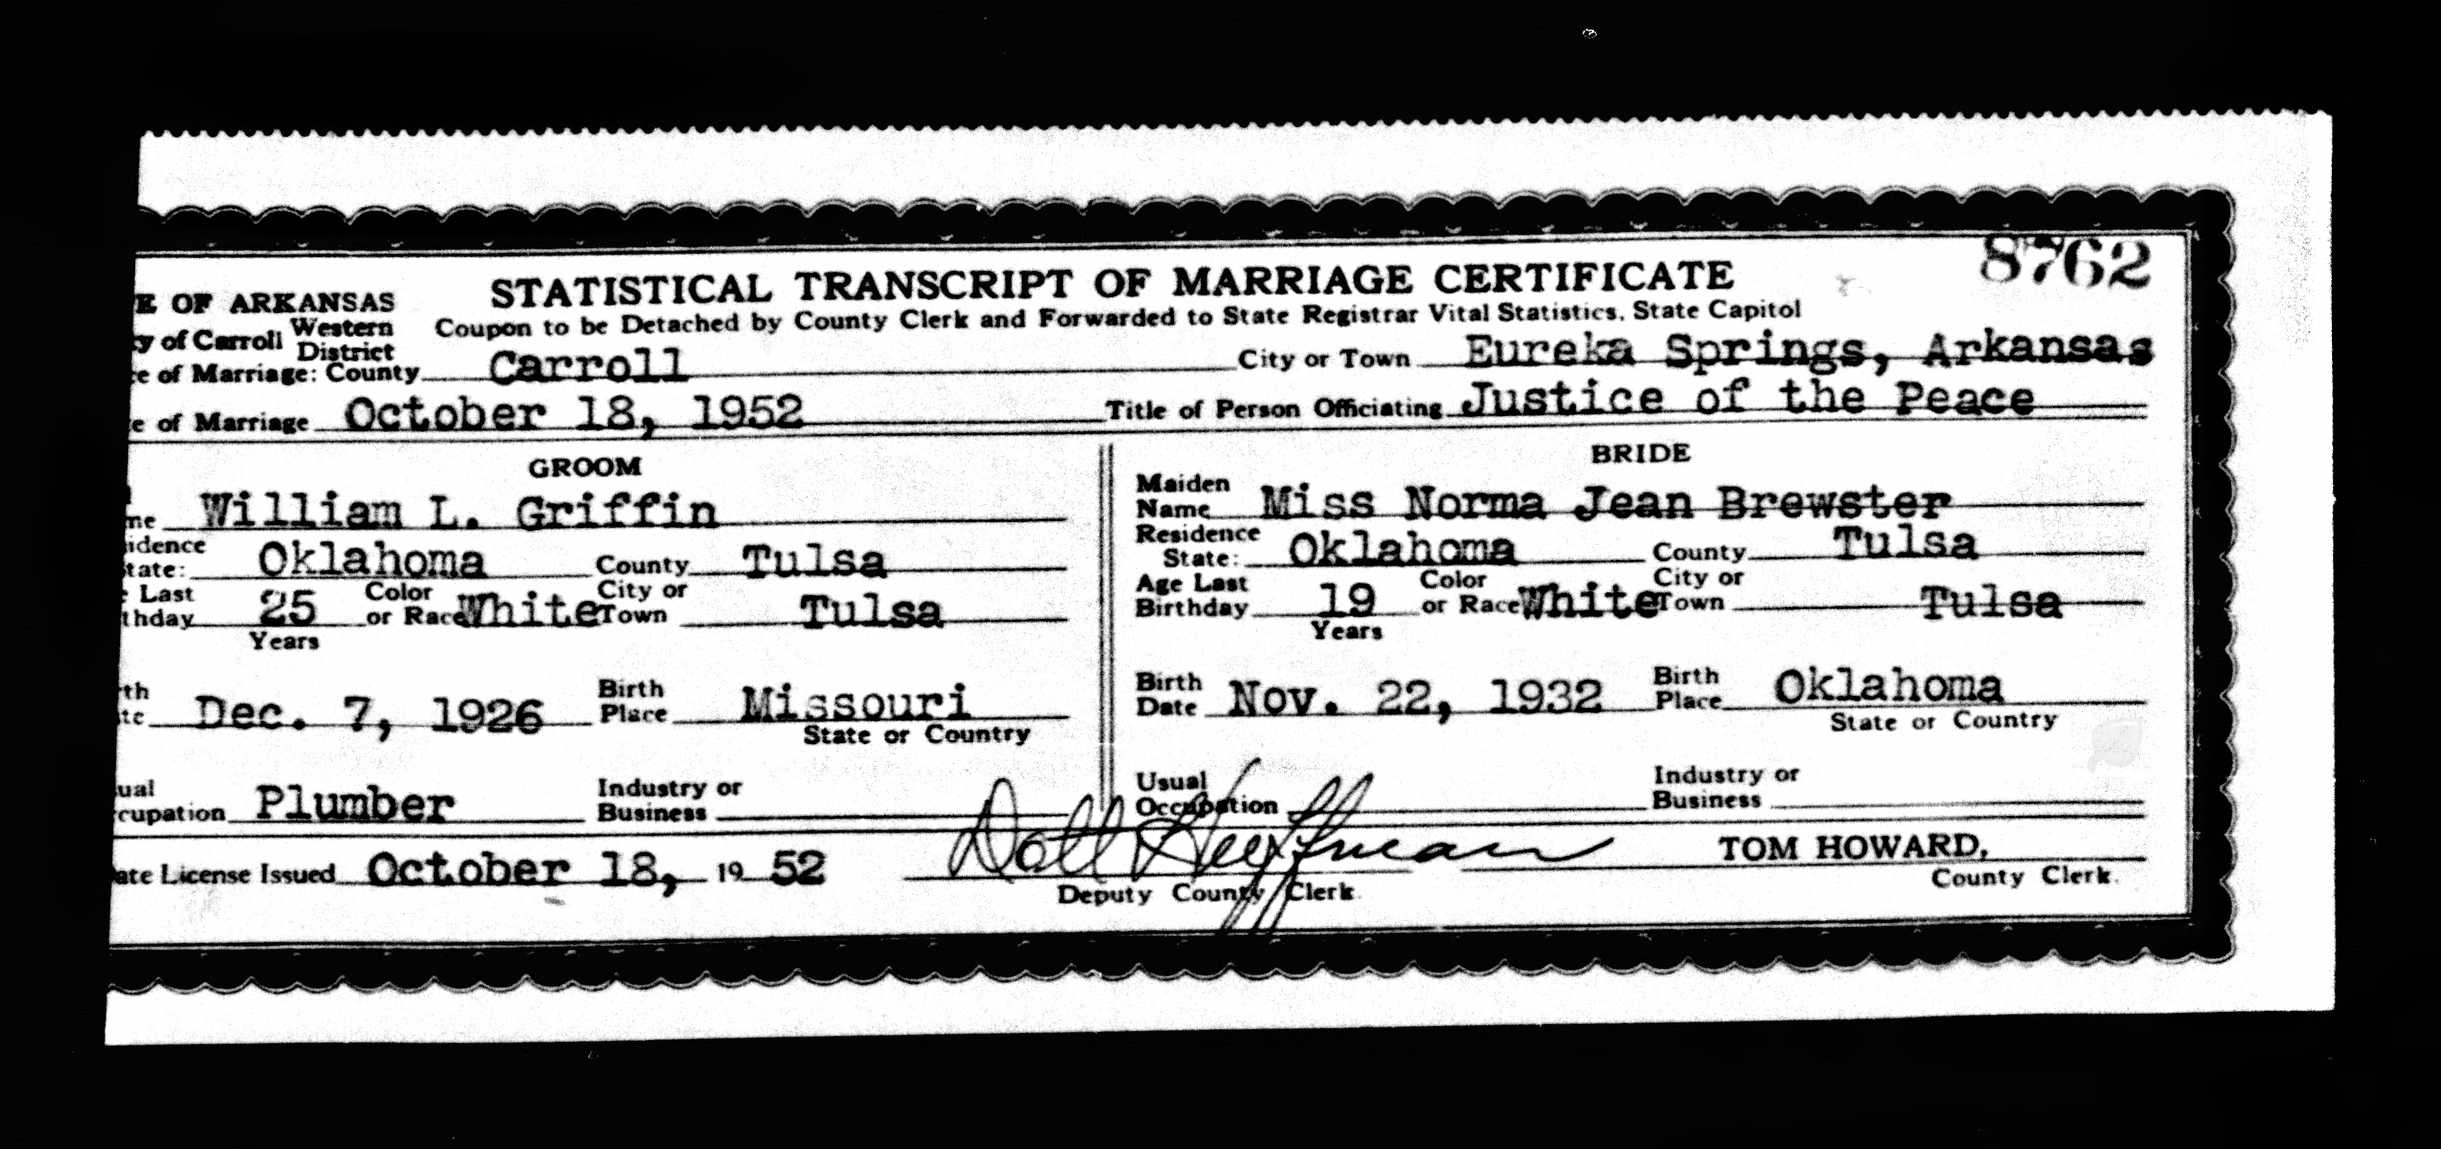 8762
E OF ARKANSAS STATISTICAL TRANSCRIPT OF MARRIAGE CERTIFICATE
y of Carroll Western District Coupon to be Detached by County Clerk and Forwarded to State Registrar Vital Statistics, State Capitol
e of Marriage: County Carroll City or Town Eureka Springs, Arkansas
e of Marriage October 18, 1952 Title of Person Officiating Justice of the Peace
GROOM
me William L. Griffin
idence
tate: Oklahoma County Tulsa
Last Color City or
thday 25 or Race White Town Tulsa
Years
th Birth
te Dec. 7, 1926 Place Missouri
State or Country
ual Industry or
cupation Plumber Business
BRIDE
Maiden
Name Miss Norma Jean Brewster
Residence
State: Oklahoma County Tulsa
Age Last Color City or
Birthday 19 or Race White Town Tulsa
Years
Birth Birth
Date Nov. 22, 1932 Place Oklahoma
State or Country
Usual Industry or
Occupation Business
ate License Issued October 18, 1952 Dott Huffman TOM HOWARD,
Deputy County Clerk. County Clerk.